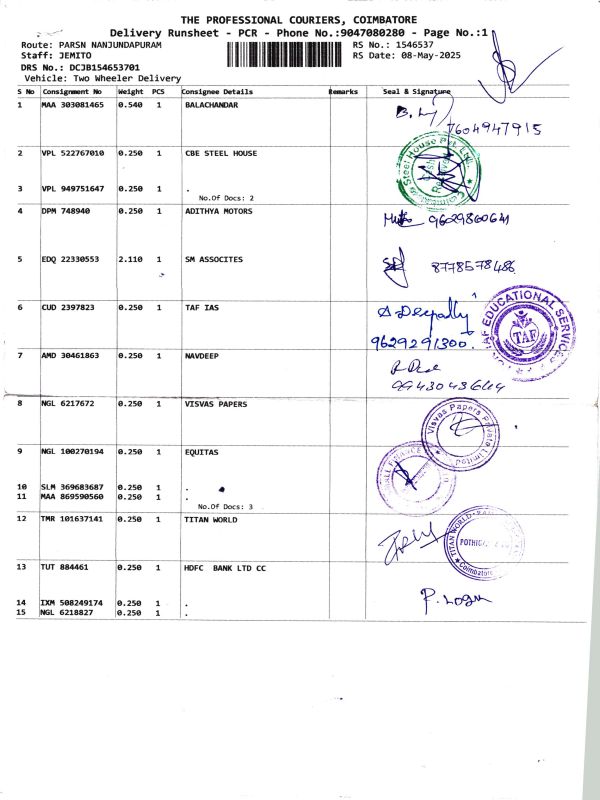 THE PROFESSIONAL COURIERS, COIMBATORE
Delivery Runsheet - PCR - Phone No.:9047080280 - Page No.:1
Route: PARSN NANJUNDAPURAM
Staff: JEMITO
DRS No.: DCJB154653701
Vehicle: Two Wheeler Delivery
RS No.: 1546537
RS Date: 08-May-2025
S No Consignment No Weight PCS Consignee Details Remarks Seal & Signature
1 MAA 303081465 0.540 1 BALACHANDAR
7604947915
2 VPL 522767010 0.250 1 CBE STEEL HOUSE
Steel House Pvt. Ltd.
3 VPL 949751647 0.250 1 .
No.Of Docs: 2
4 DPM 748940 0.250 1 ADITHYA MOTORS
5 EDQ 22330553 2.110 1 SM ASSOCITES
8778578486
6 CUD 2397823 0.250 1 TAF IAS
9629291300.
TAF EDUCATIONAL SERVICES
TAF
7 AMD 30461863 0.250 1 NAVDEEP
8 NGL 6217672 0.250 1 VISVAS PAPERS
Visvas Papers Private Limited
9 NGL 100270194 0.250 1 EQUITAS
10 SLM 369683687 0.250 1 .
11 MAA 869590560 0.250 1 .
No.Of Docs: 3
12 TMR 101637141 0.250 1 TITAN WORLD
TITAN WORLD
Coimbatore
13 TUT 884461 0.250 1 HDFC BANK LTD CC
14 IXM 508249174 0.250 1 .
P. Logu
15 NGL 6218827 0.250 1 .